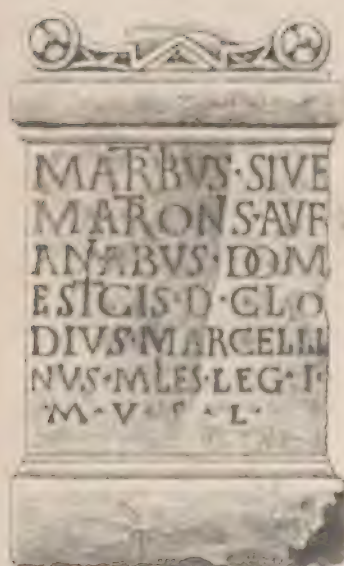 MATRBVS·SIVE
MATRONIS·AVF
ANABVS·DOM
ESTICIS·D·CLO
DIVS·MARCELLI
NVS·MILES·LEG·I·
·M·V·S·L·